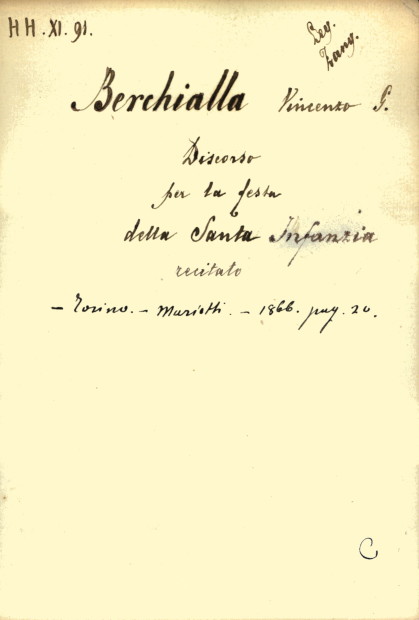 HH. XI. 91.
Leg.
Zang.
Berchialla Vincenzo G.
Discorso
per la festa
della Santa Infanzia
recitato
— Torino. — Marietti. — 1866. pag. 20.
C